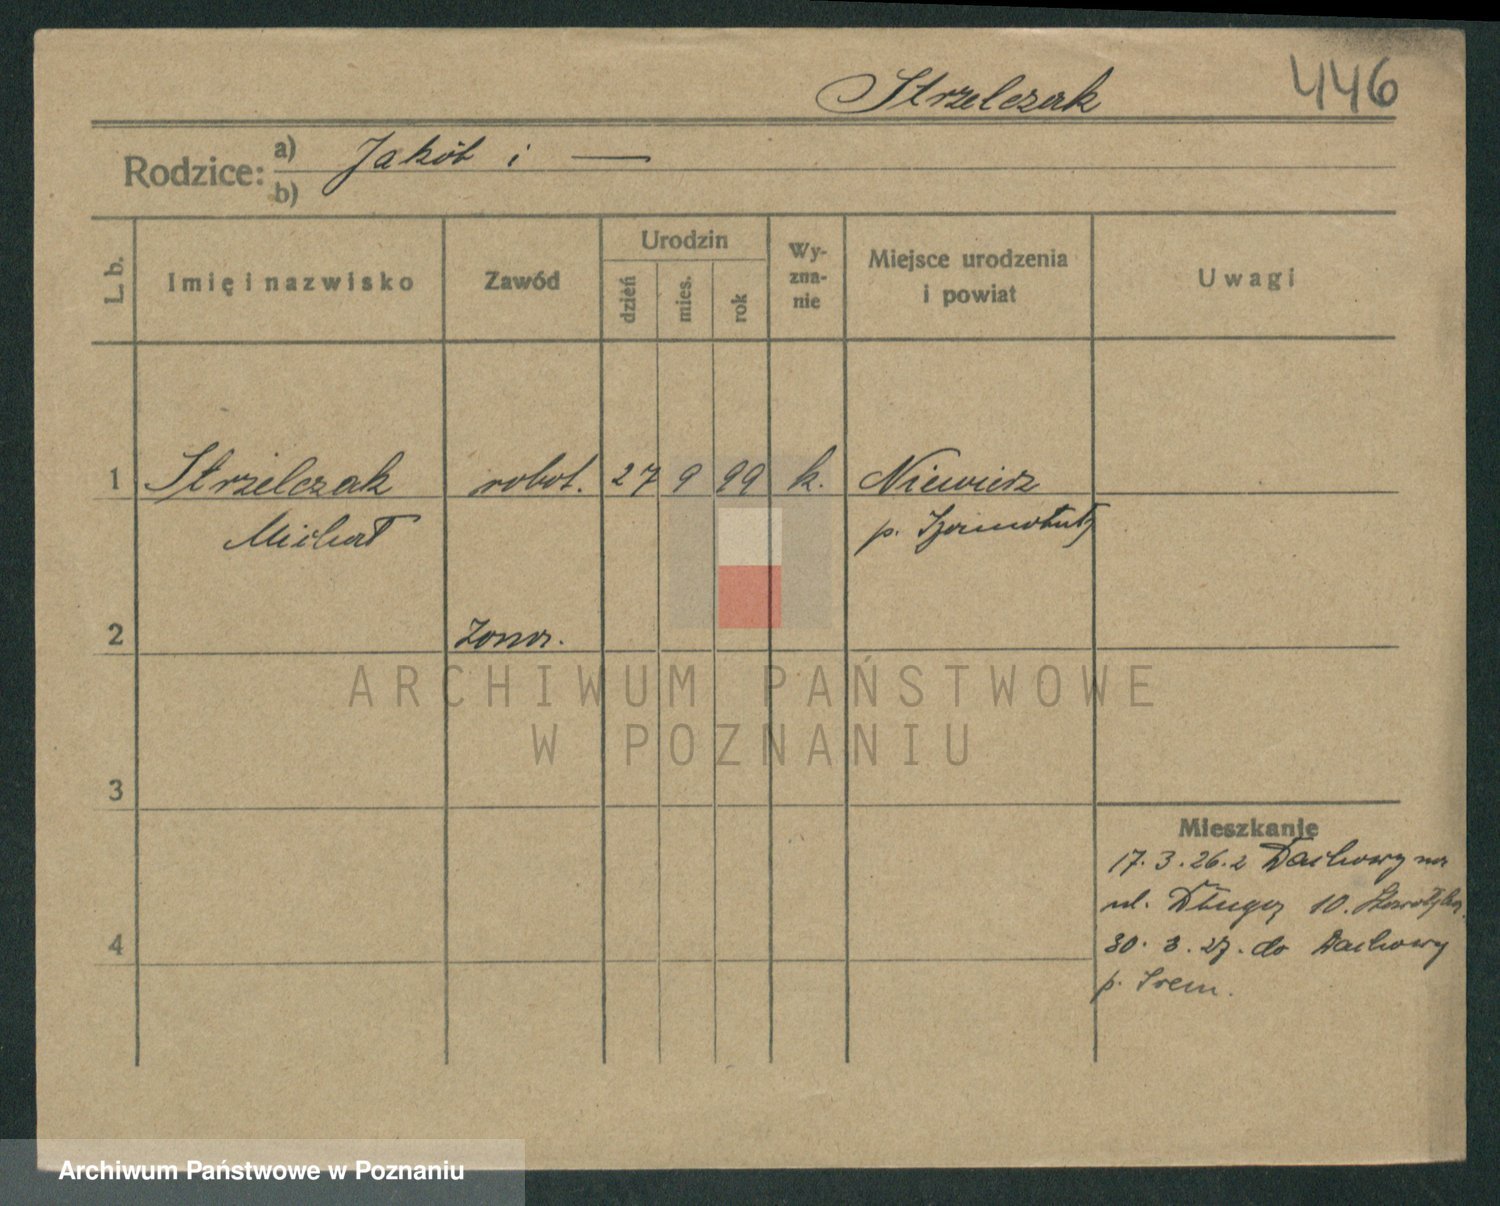 Strzelczak
446
Rodzice:
a) Jakób i —
b)
L. b.
Imię i nazwisko
Zawód
Urodzin
dzień
mies.
rok
Wy-
zna-
nie
Miejsce urodzenia
i powiat
Uwagi
1 Strzelczak robot. 27 9 99 k. Niewierz
Michał p. Szamotuły
2 żona.
ARCHIWUM PAŃSTWOWE
W POZNANIU
3
Mieszkanie
17.3.26. z Dachowy na
ul. Długą 10.
4
30.3.27. do Dachowy
p. Śrem.
Archiwum Państwowe w Poznaniu